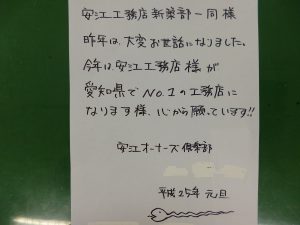 安江工務店新築部一同様
昨年は、大変お世話になりました。
今年は安江工務店様が
愛知県でNO.1の工務店に
なります様、心から願っています!!
安江オーナーズ倶楽部
平成25年 元旦